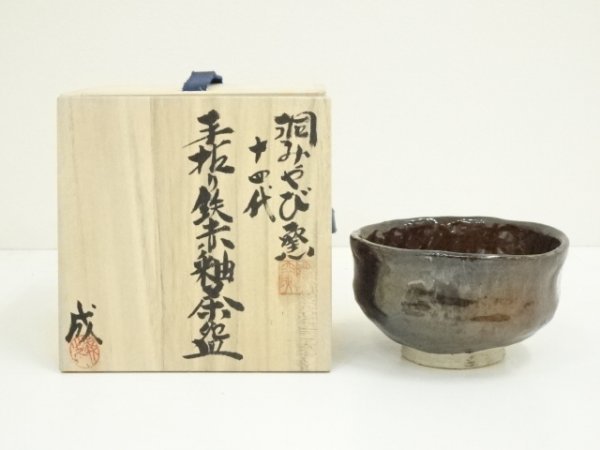 洞みやび窯
十四代
手拈り鉄赤釉茶盌
成